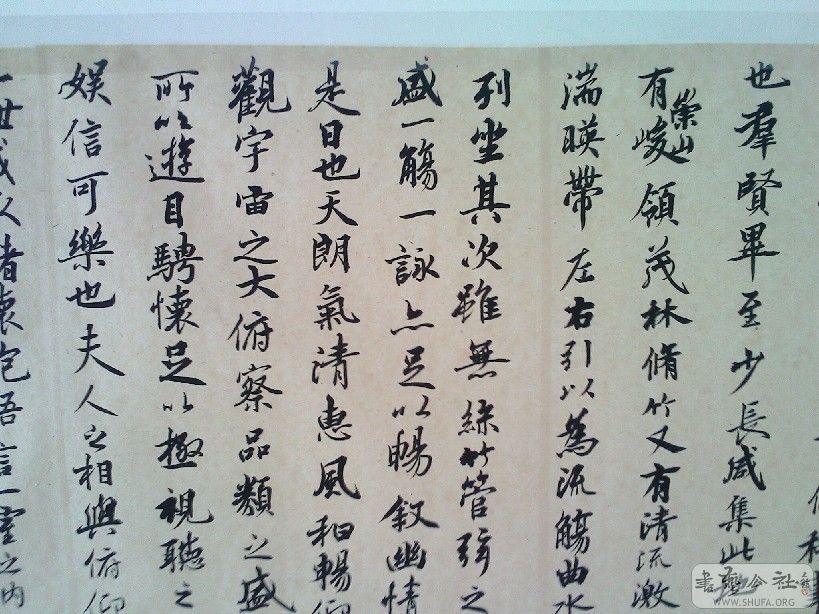 也羣賢畢至少長咸集此地
有崇山峻領茂林脩竹又有清流激
湍暎帶左右引以為流觴曲水
列坐其次雖無絲竹管弦之
盛一觴一詠亦足以暢敘幽情
是日也天朗氣清惠風和暢仰
觀宇宙之大俯察品類之盛
所以遊目騁懷足以極視聽之
娛信可樂也夫人之相與俯仰
一世或以諸懷抱悟言一室之內
書法公社
WWW.SHUFA.ORG